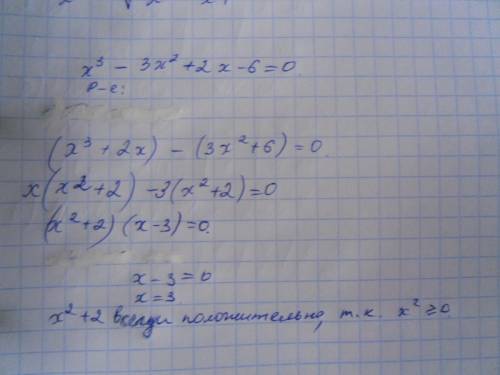 x³ - 3x² + 2x - 6 = 0
Р-е:
(x³ + 2x) - (3x² + 6) = 0
x(x² + 2) - 3(x² + 2) = 0
(x² + 2)(x - 3) = 0.
x - 3 = 0
x = 3
x² + 2 положительно, т.к. x² ≥ 0